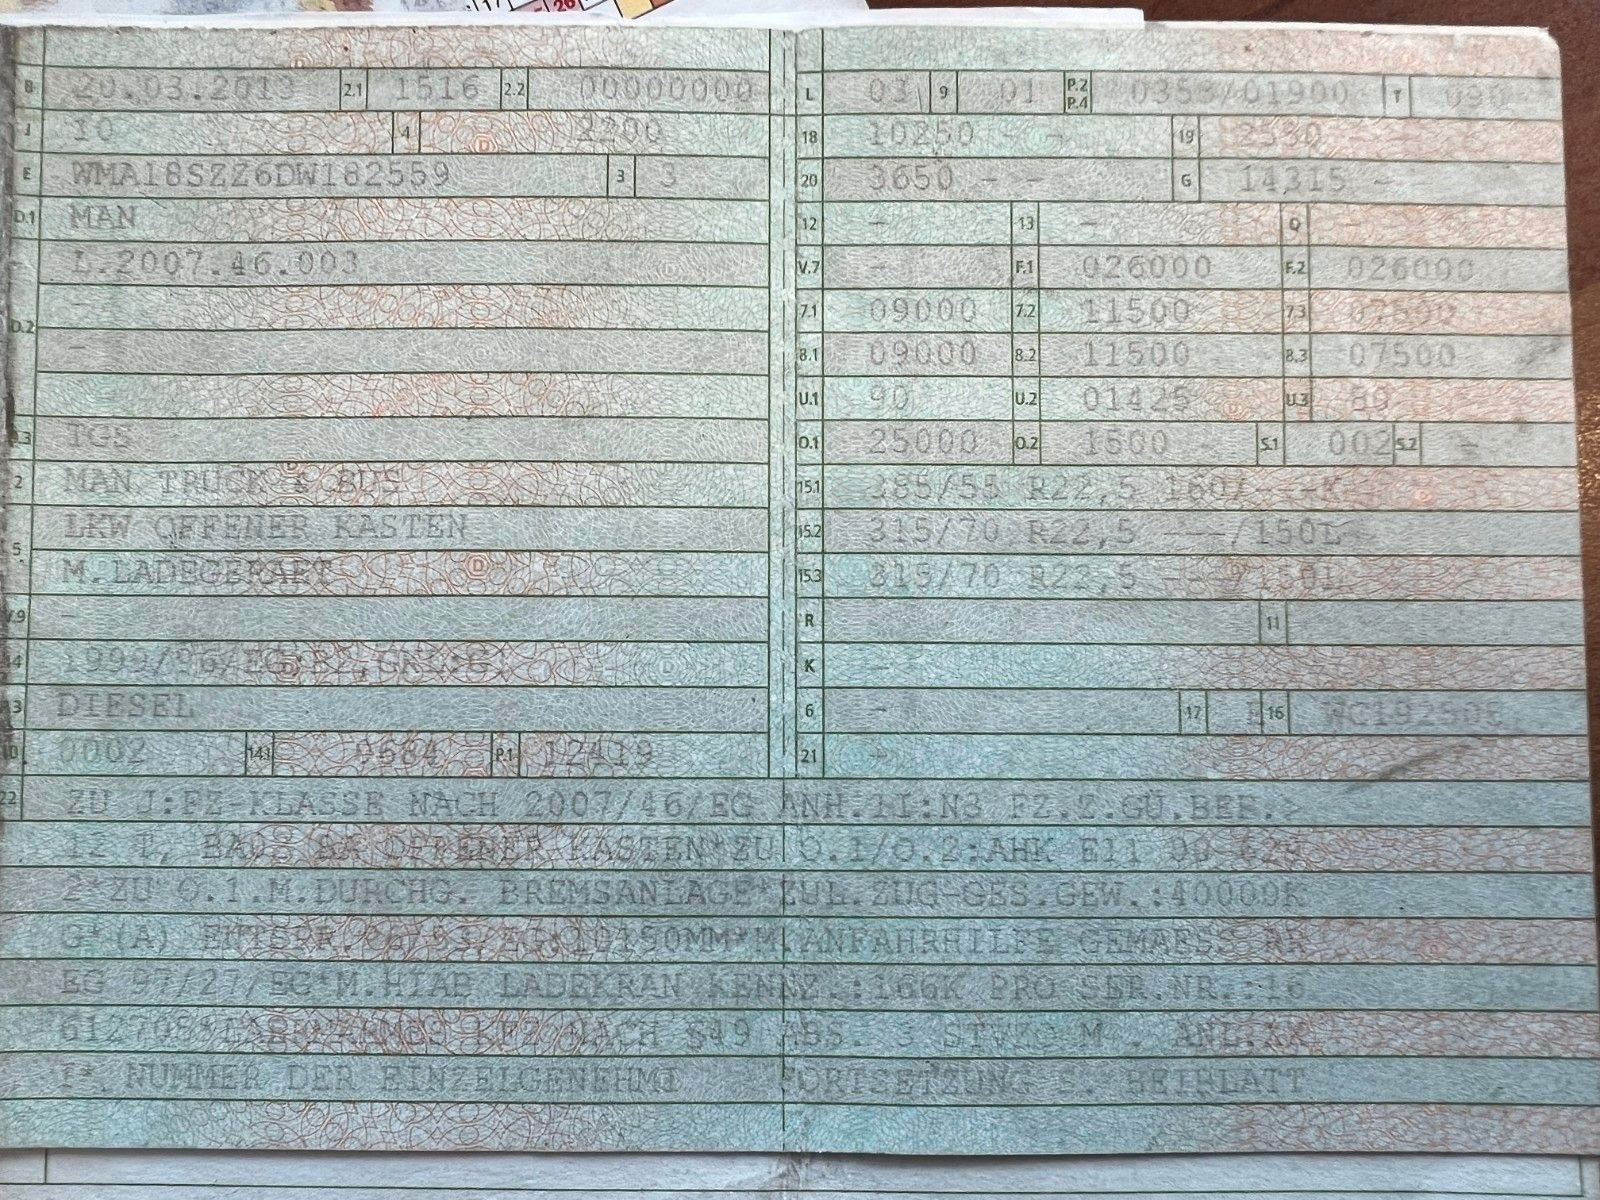 17 26
B 20.03.2013 2.1 1516 2.2 00000000
J 10 4 2200
E WMA18SZZ6DW182559 3 3
D.1 MAN
L.2007.46.003
-
D.2
-
-
D.3 TGS
2 MAN TRUCK & BUS
LKW OFFENER KASTEN
5
M.LADEGERAET
V.9 -
14 1999/96/EG;B2,GKL:G1
P.3 DIESEL
10 0002 14.1 9684 P.1 12419
L 03 9 01 P.2 P.4 0353/01900 T 090
18 10250 - - 19 2550
20 3650 - - G 14315 -
12 - 13 - Q -
V.7 - F.1 026000 F.2 026000
7.1 09000 7.2 11500 7.3 07500
8.1 09000 8.2 11500 8.3 07500
U.1 90 U.2 01425 U.3 80
O.1 25000 O.2 1500 S.1 002 S.2 -
15.1 385/55 R22,5 160/---K
15.2 315/70 R22,5 ---/150L
15.3 315/70 R22,5 ---/150L
R 11
K -
6 - 17 E 16
21 -
22 ZU J:FZ-KLASSE NACH 2007/46/EG ANH.II:N3 FZ.Z.GÜ.BEF.>
12 T, BA03 BA OFFENER KASTEN*ZU O.1/O.2:AHK E11 00
2*ZU O.1.M.DURCHG. BREMSANLAGE*ZUL.ZUG-GES.GEW.:40000K
G*(A) ENTSPR.96/53/EG:10150MM*M.ANFAHRHILFE GEMAESS RR
EG 97/27/EG*M.HIAB LADEKRAN KENNZ.:166K PRO SER.NR.:16
612708*LAERMARMES KFZ NACH §49 ABS. 3 STVZO M . ANL.XX
I*. NUMMER DER EINZELGENEHMI FORTSETZUNG S. BEIBLATT